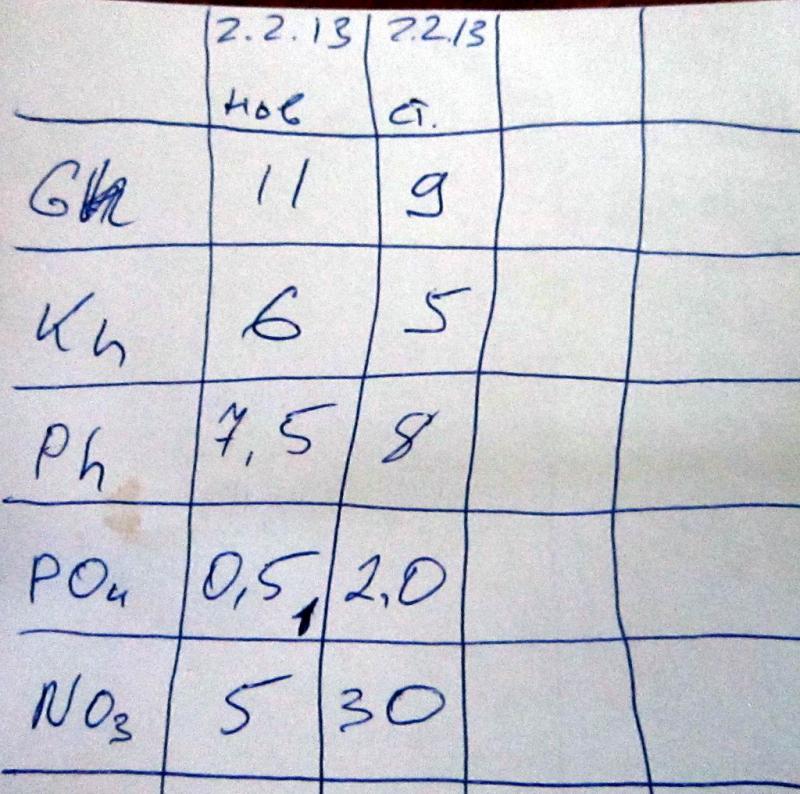 2.2.13 2.2.13
нов ст.
Gh 11 9
Kh 6 5
Ph 7,5 8
PO4 0,5 2,0
NO3 5 30